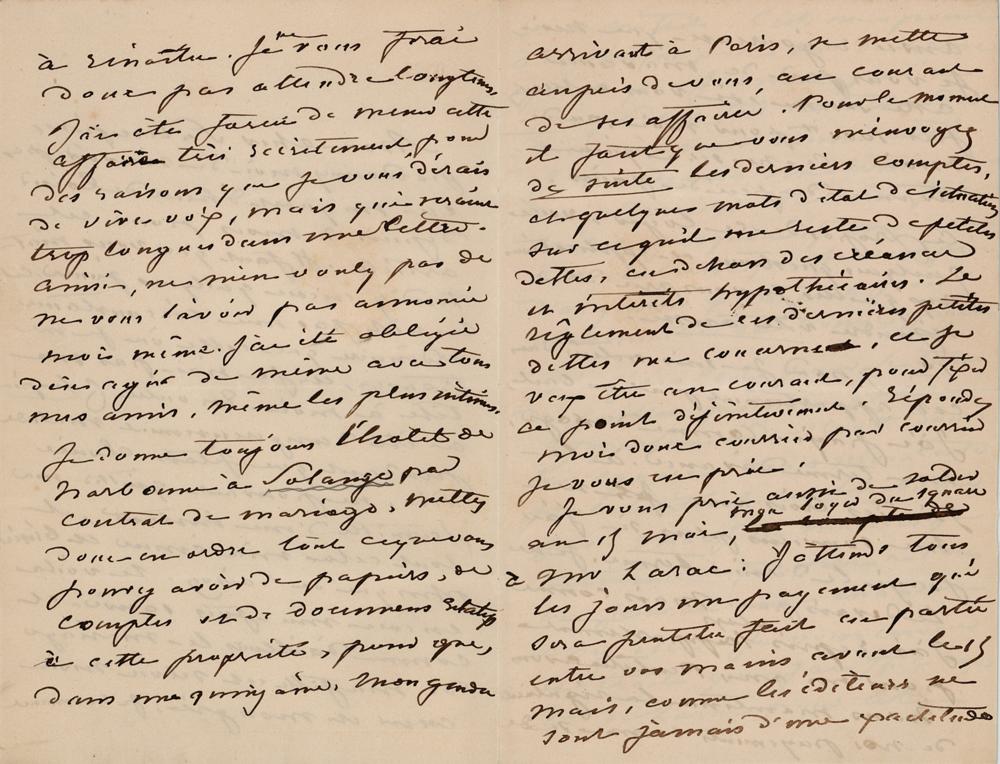 à Sinatre. Je ne vous ferai
donc pas attendre longtems.
J'ai été forcée de mener cette
affaire très secrètement pour
des raisons que je vous dirais
de vive voix, mais qui seraient
trop longues dans une lettre.
ainsi, ne m'en voulez pas de
ne vous l'avoir pas annoncé
moi même. J'ai été obligée
d'en agir de même avec tous
mes amis, même les plus intimes.
Je donne toujours l'hotel de
Narbonne à Solange par
contrat de mariage. Mettez
donc en ordre tout ce que vous
pourrez avoir de papiers, de
comptes et de documens relatifs
à cette propriété, pour que,
dans une quinzaine, mon gendre
arrivant à Paris, se mette
auprès de vous, au courant
de ses affaires. Pour le moment
il faut que vous m'envoyez
de suite les derniers comptes,
et quelques mots d'état de situation
sur ce qu'il me reste de petites
dettes, en dehors des créances
et intérêts hypothécaires. Le
règlement de ces dernières petites
dettes me concerne, et je
veux être au courant, pour fixer
ce point définitivement. Répondez
moi donc courrier par courrier
je vous en prie.
Je vous prie aussi de solder
au 15 mai, mon loyer du square
à Mr Larac. J'attends tous
les jours un payement qui
sera peutetre fait en partie
entre vos mains avant le 15
mai, comme les éditeurs ne
sont jamais d'une exactitude